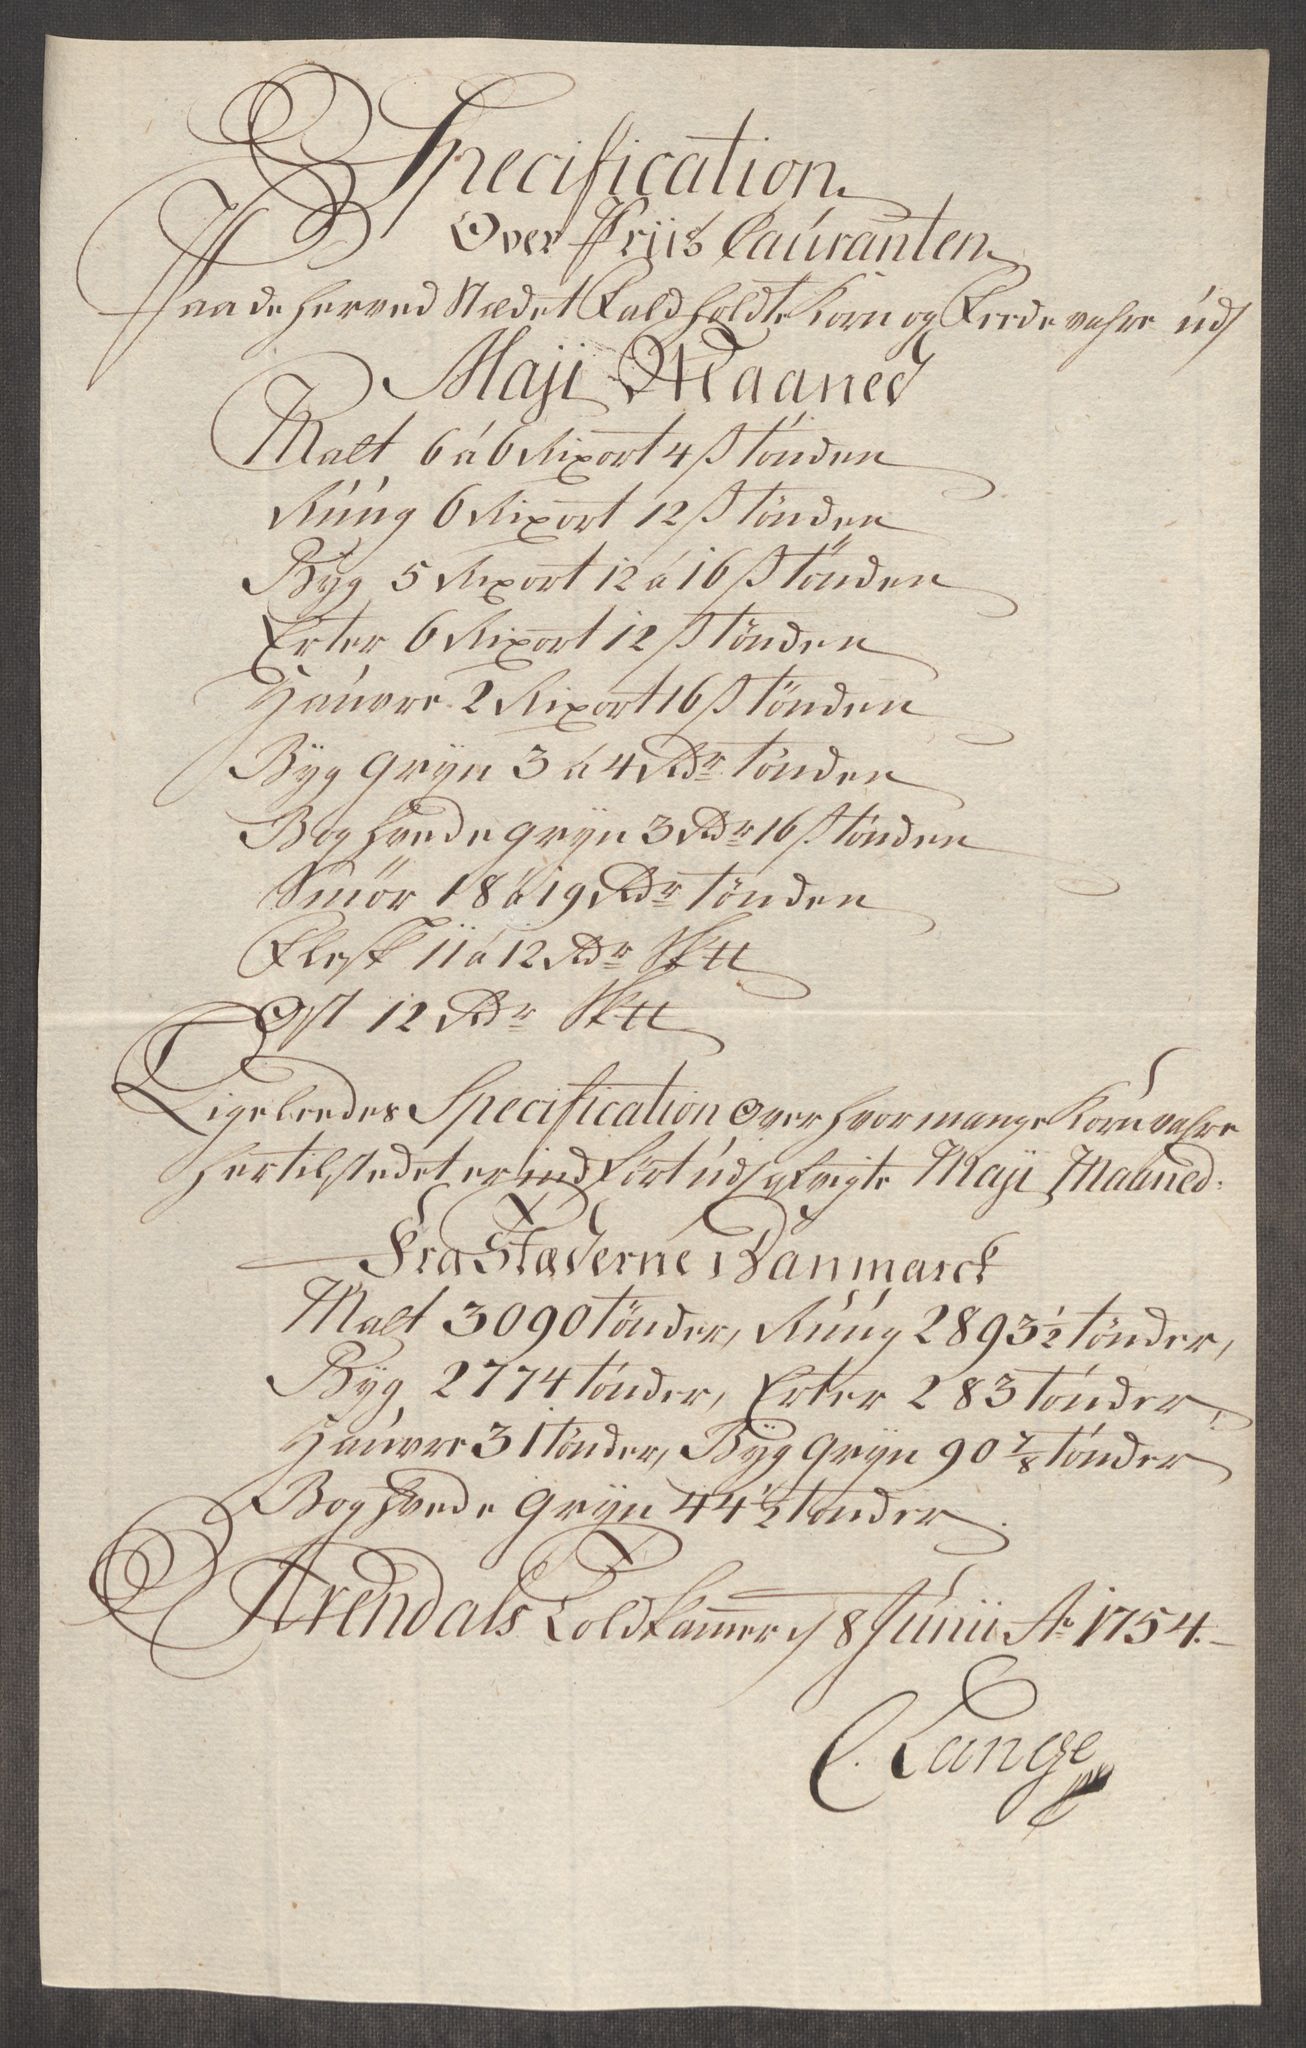 Specification
Over Priis Couranten
Paa de herved Stædet Fald holdte Korn og Feede vahre udj
Maji Maaned
Malt 6 á 6 Rixort 4 ß tönden
Rúúg 6 Rixort 12 ß tönden
Byg 5 Rixort 12 á 16 ß tönden
Erter 6 Rixort 12 ß tönden
Haúvre 2 Rixort 16 ß tönden
Byg Gryn 3 á 4 Rdr tönden
Boghvede gryn 3 Rdr 16 ß tönden
Smör 18 á 19 Rdr tönden
Flesk 11 á 12 Rdr Sk℔
Ost 12 Rdr Sk℔
Ligeleedes Specification Over hvor mange Korn vahre
hertilstedet er ind ført udj Maji Maaned.
Fra Stæderne i Danmarck
Malt 3090 tönder, Rúúg 2893½ tönder,
Byg 2774 tönder, Erter 283 tönder,
Haúvre 31 tönder, Byg Gryn 90⅞ tönder
Boghvede Gryn 44½ tönder.
Arendals Toldkammer d 8 Junii Ao 1754.
C. Lange